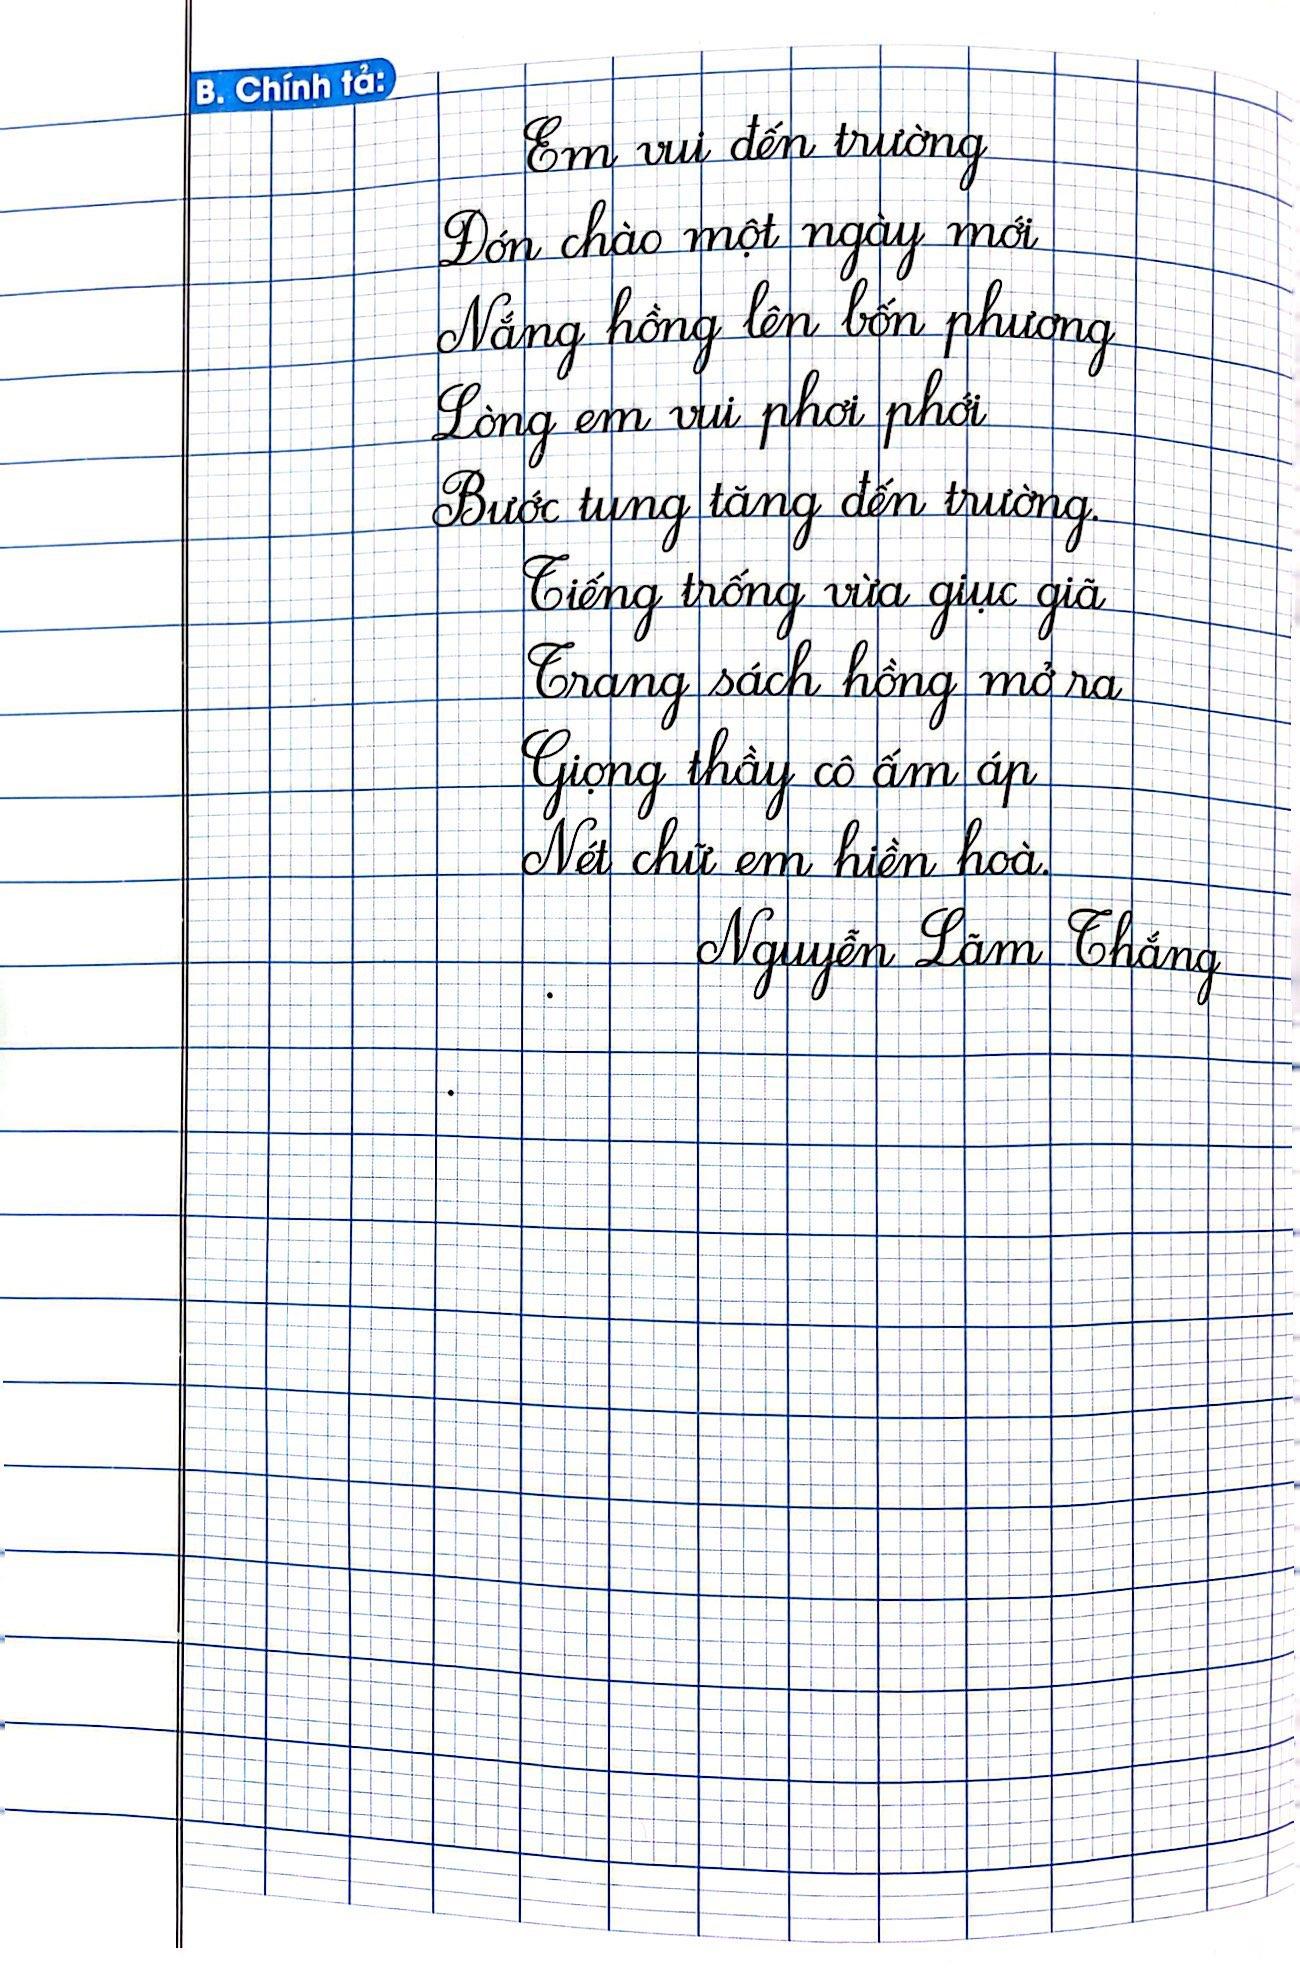 B. Chính tả:
Em vui đến trường
Đón chào một ngày mới
Nắng hồng lên bốn phương
Lòng em vui phơi phới
Bước tung tăng đến trường.
Tiếng trống vừa giục giã
Trang sách hồng mở ra
Giọng thầy cô ấm áp
Nét chữ em hiền hoà.
Nguyễn Lãm Thắng